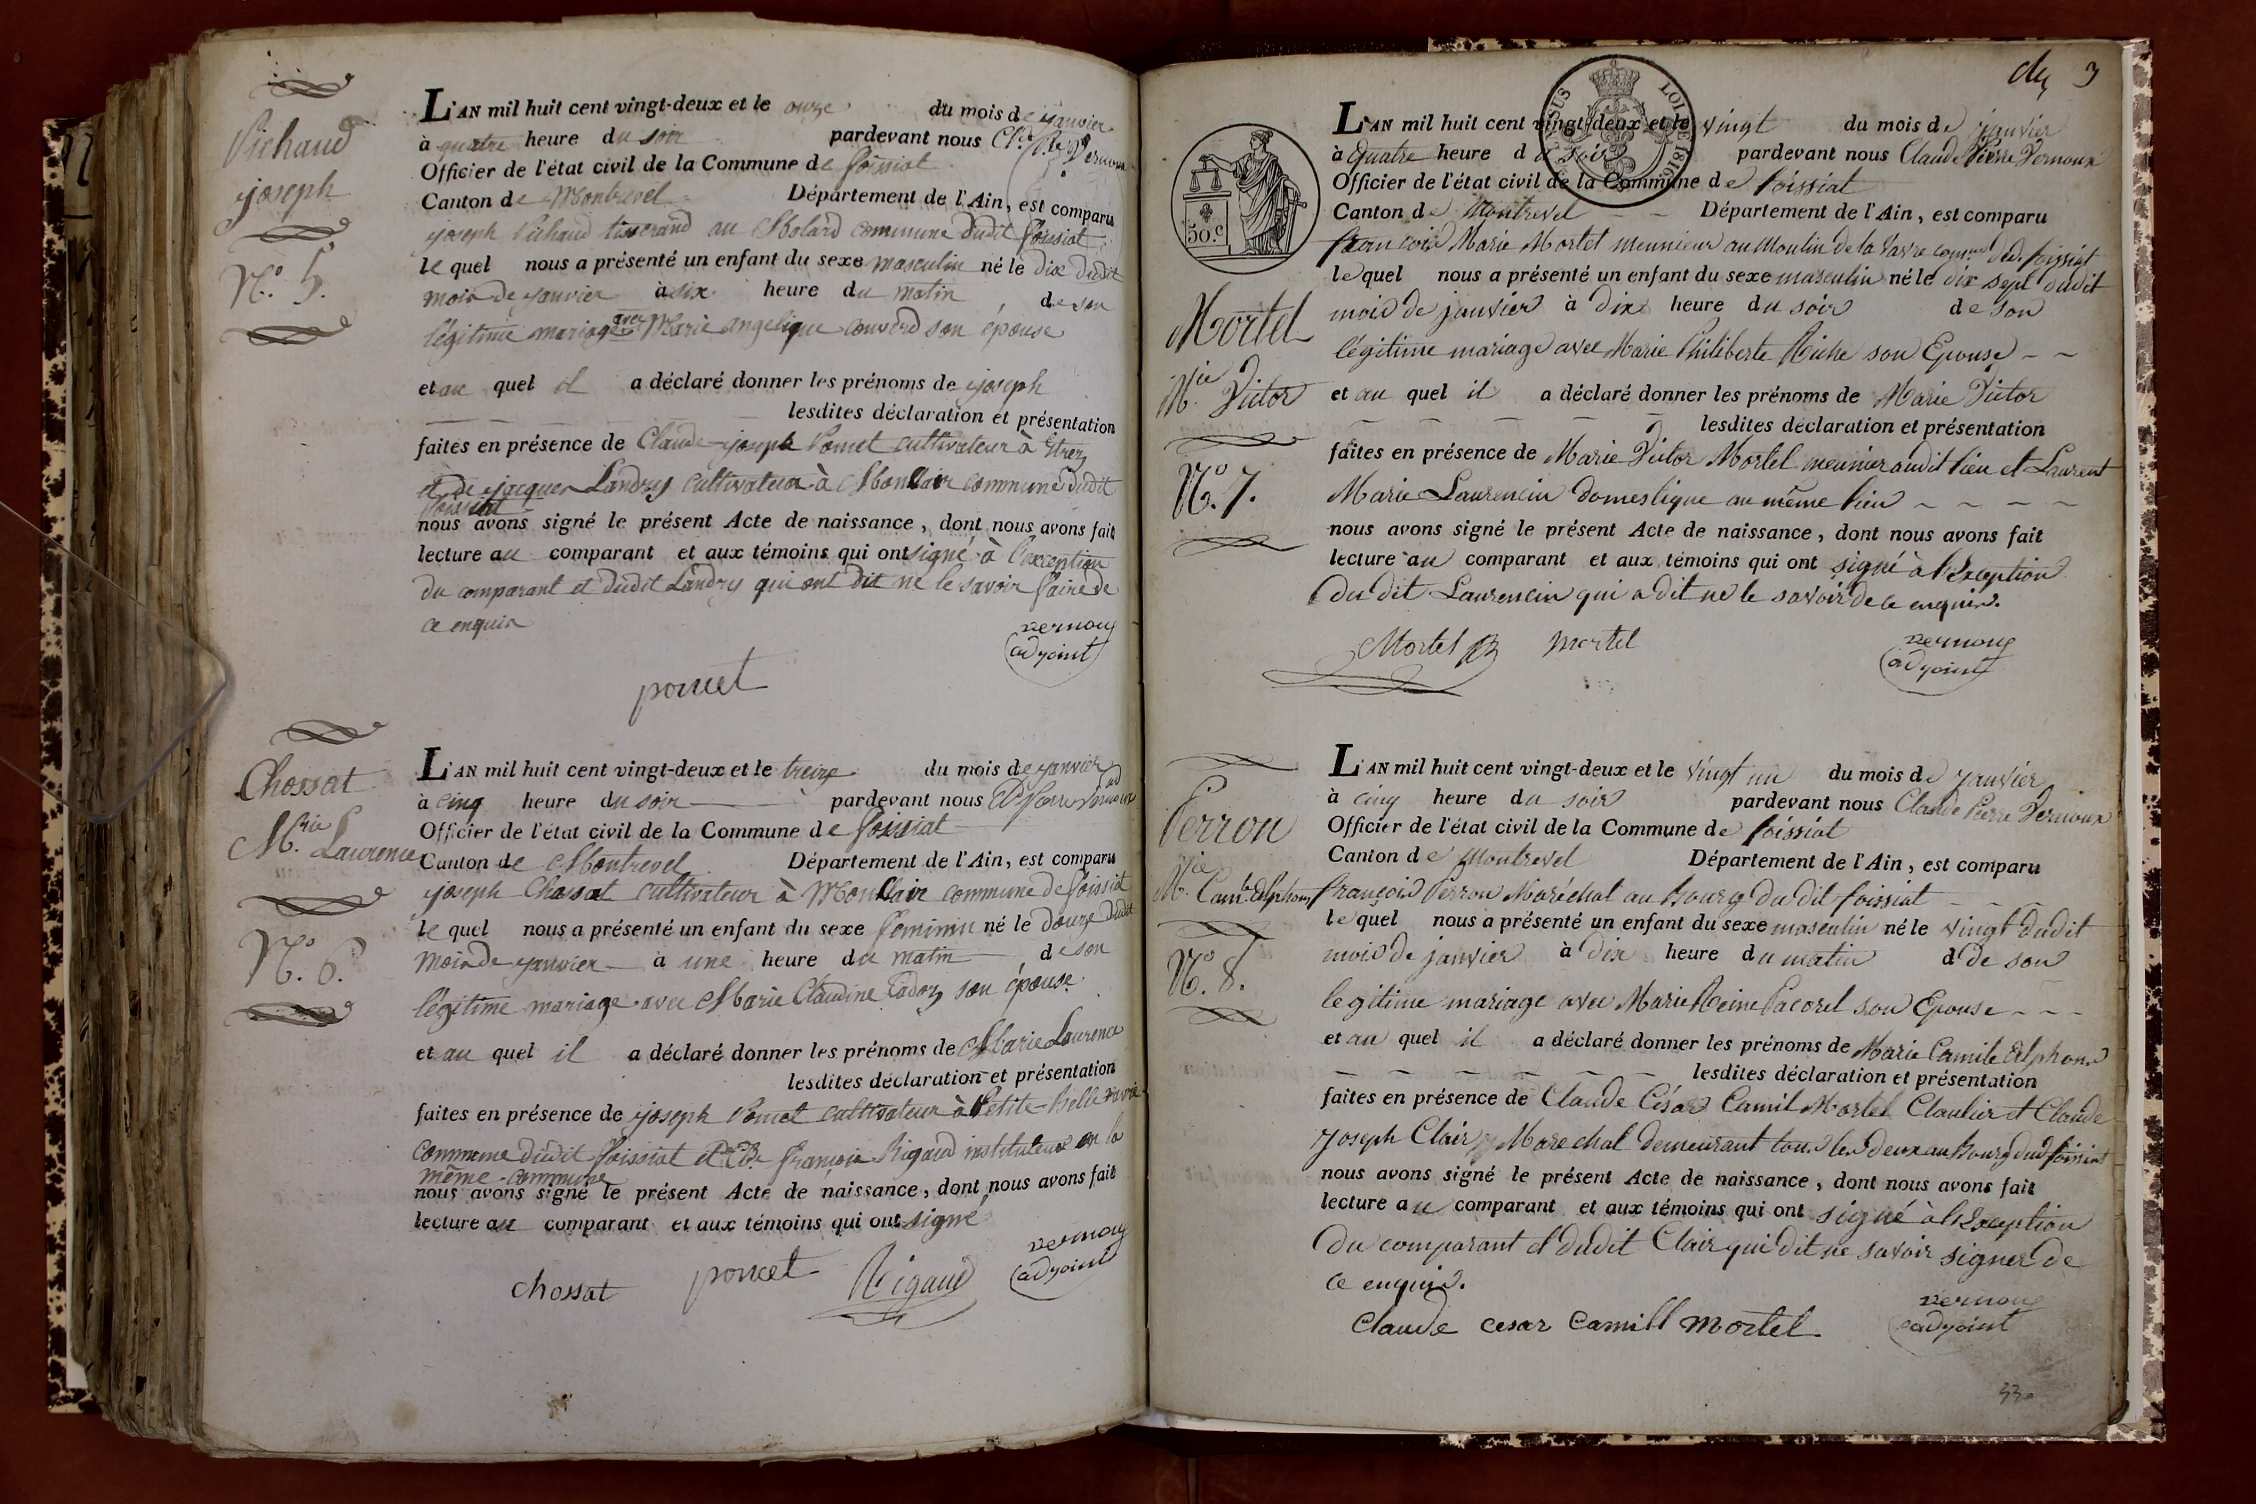 Pichaud
joseph
N.º 5.
L'AN mil huit cent vingt-deux et le onze du mois de janvier
à quatre heure du soir pardevant nous Cl.de P.re Vernoux
Officier de l'état civil de la Commune de foissiat
Canton de Montrevel Département de l'Ain, est comparu
joseph Pichaud tisserand au Molard commune dudit foissiat
le quel nous a présenté un enfant du sexe masculin né le dix dudit
mois de janvier à six heure du matin, de son
légitime mariage avec Marie angelique Couverd son épouse
et au quel il a déclaré donner les prénoms de joseph
lesdites déclaration et présentation
faites en présence de Claude joseph Poncet cultivateur à Etrez
et de jacques Landry cultivateur à Monclair commune dudit
foissiat
nous avons signé le présent Acte de naissance, dont nous avons fait
lecture au comparant et aux témoins qui ont signé à l'exception
du comparant et dudit Landry qui ont dit ne le savoir faire de
ce enquis
vernoux
adjoint
poncet
Chossat
M.rie Laurence
N.º 6.
L'AN mil huit cent vingt-deux et le treize du mois de janvier
à cinq heure du soir pardevant nous Cd. Pierre Vernoux
Officier de l'état civil de la Commune de foissiat
Canton de Montrevel Département de l'Ain, est comparu
joseph Chossat cultivateur à Monclair commune de foissiat
le quel nous a présenté un enfant du sexe féminin né le douze dudit
mois de janvier à une heure du matin de son
légitime mariage avec Marie Claudine Cadoz son épouse
et au quel il a déclaré donner les prénoms de Marie Laurence
lesdites déclaration et présentation
faites en présence de joseph Poncet cultivateur à Petite-Bellevavre
commune dudit foissiat et Cd. françois Rigaud instituteur en la
même commune
nous avons signé le présent Acte de naissance, dont nous avons fait
lecture au comparant et aux témoins qui ont signé
vernoux
adjoint
chossat poncet Rigaud
3
50.c
LOI DE 1816
Mortel
M.rie Victor
N.º 7.
L'AN mil huit cent vingt-deux et le vingt du mois de janvier
à quatre heure du soir pardevant nous Claude Pierre Vernoux
Officier de l'état civil de la Commune de foissiat
Canton de Montrevel Département de l'Ain, est comparu
françois Marie Mortel meunier au Moulin de la Vavre com.ne dud. foissiat
le quel nous a présenté un enfant du sexe masculin né le dix sept dudit
mois de janvier à dix heure du soir de son
légitime mariage avec Marie Philiberte Riche son Epouse
et au quel il a déclaré donner les prénoms de Marie Victor
lesdites déclaration et présentation
faites en présence de Marie Victor Mortel meunier audit lieu et Laurent
Marie Laurencin domestique au même lieu
nous avons signé le présent Acte de naissance, dont nous avons fait
lecture au comparant et aux témoins qui ont signé à l'Exception
du dit Laurencin qui a dit ne le savoir de ce enquis.
Mortel mortel
vernoux
adjoint
Perron
M.rie Cam.le Alphons
N.º 8.
L'AN mil huit cent vingt-deux et le vingt un du mois de janvier
à cinq heure du soir pardevant nous Claude Pierre Vernoux
Officier de l'état civil de la Commune de foissiat
Canton de Montrevel Département de l'Ain, est comparu
françois Perron Maréchal au Bourg du dit foissiat
le quel nous a présenté un enfant du sexe masculin né le vingt dudit
mois de janvier à dix heure du matin d de son
legitime mariage avec Marie Reine Pacorel son Epouse
et au quel il a déclaré donner les prénoms de Marie Camile Alphons
lesdites déclaration et présentation
faites en présence de Claude César Camil Mortel Cloutier et Claude
Joseph Clair Marechal demeurant tous les deux au Bourg dud foissiat
nous avons signé le présent Acte de naissance, dont nous avons fait
lecture au comparant et aux témoins qui ont signé à l'Exception
du comparant et dudit Clair qui dit ne savoir signer de
ce enquis.
vernoux
adjoint
Claude cesar Camill mortel